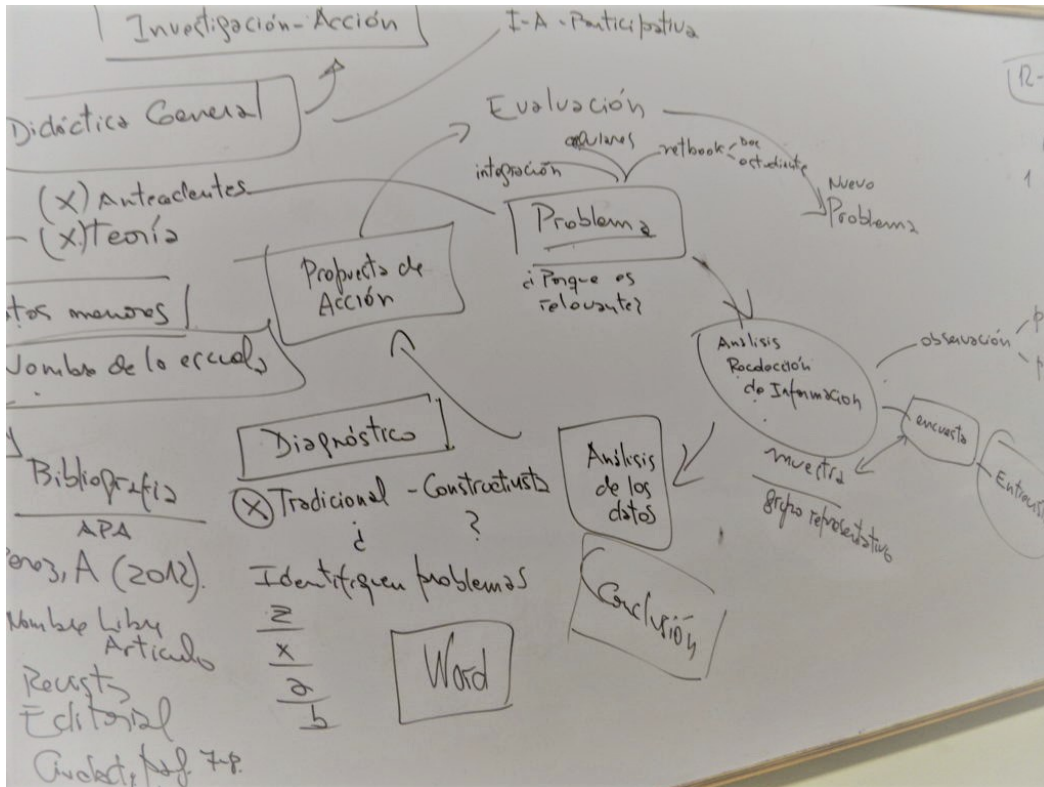 Investigación-Acción
I-A-Participativa
Didáctica General
Evaluación
celulares
netbook
Doc
estudiante
integración
Nuevo
Problema
(X) Antecedentes
- (X) Teoría
Problema
¿Porque es
relevante?
Propuesta de
Acción
tos menores
Nombre de la escuela
Análisis
Recolección
de Información
observación
encuesta
muestra
grupo representativo
Diagnóstico
(X) Tradicional - Constructivista
¿ ?
Identifiquen problemas
z
x
a
b
Word
Análisis
de los
datos
Conclusión
Bibliografía
APA
Perez, A (2012).
Nombre Libro
Artículo
Revista
Editorial
Ciudad, pág. 7-8.
R-
1